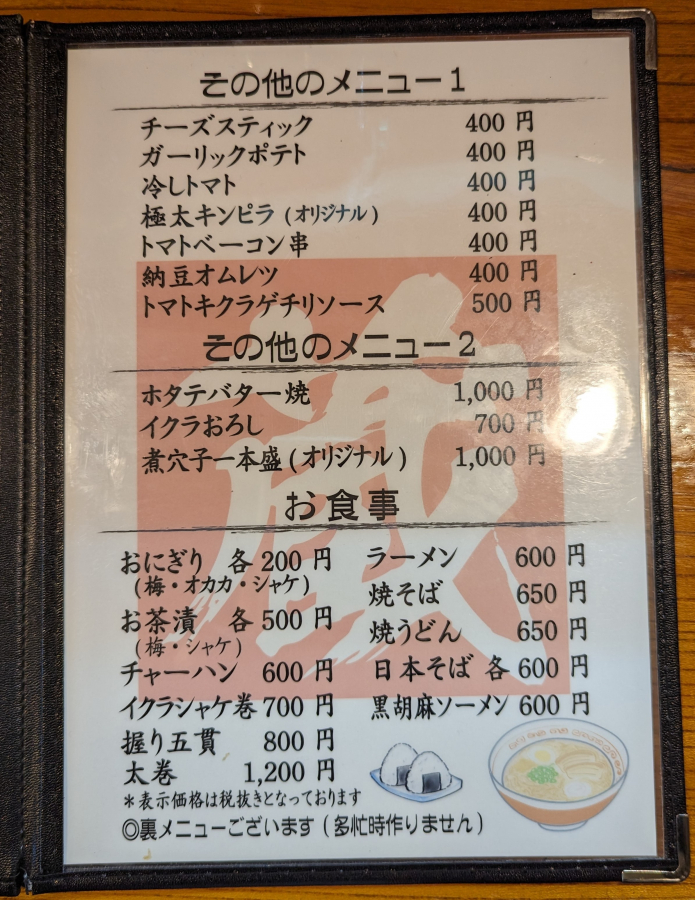 その他のメニュー1
チーズスティック 400 円
ガーリックポテト 400 円
冷しトマト 400 円
極太キンピラ (オリジナル) 400 円
トマトベーコン串 400 円
納豆オムレツ 400 円
トマトキクラゲチリソース 500 円
その他のメニュー2
ホタテバター焼 1,000 円
イクラおろし 700 円
煮穴子一本盛 (オリジナル) 1,000 円
お食事
おにぎり 各 200 円
(梅・オカカ・シャケ)
お茶漬 各 500 円
(梅・シャケ)
チャーハン 600 円
イクラシャケ巻 700 円
握り五貫 800 円
太巻 1,200 円
ラーメン 600 円
焼そば 650 円
焼うどん 650 円
日本そば 各 600 円
黒胡麻ソーメン 600 円
*表示価格は税抜きとなっております
◎裏メニューございます (多忙時作りません)
蔵